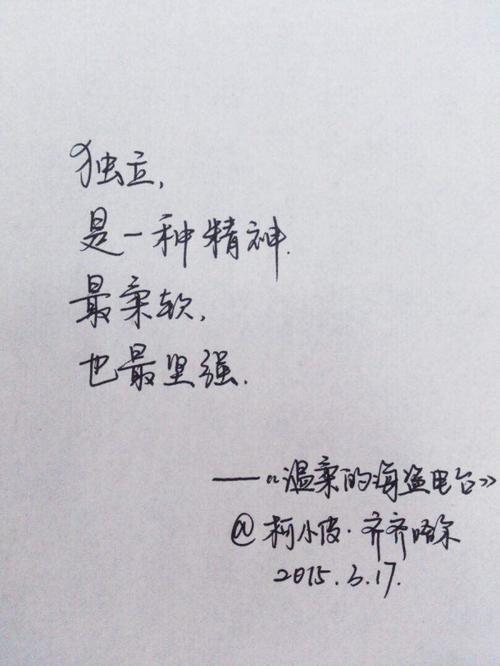 独立,
是一种精神.
最柔软,
也最坚强.
——《温柔的海盗电台》
@柯小皮·齐齐
2015.3.17.